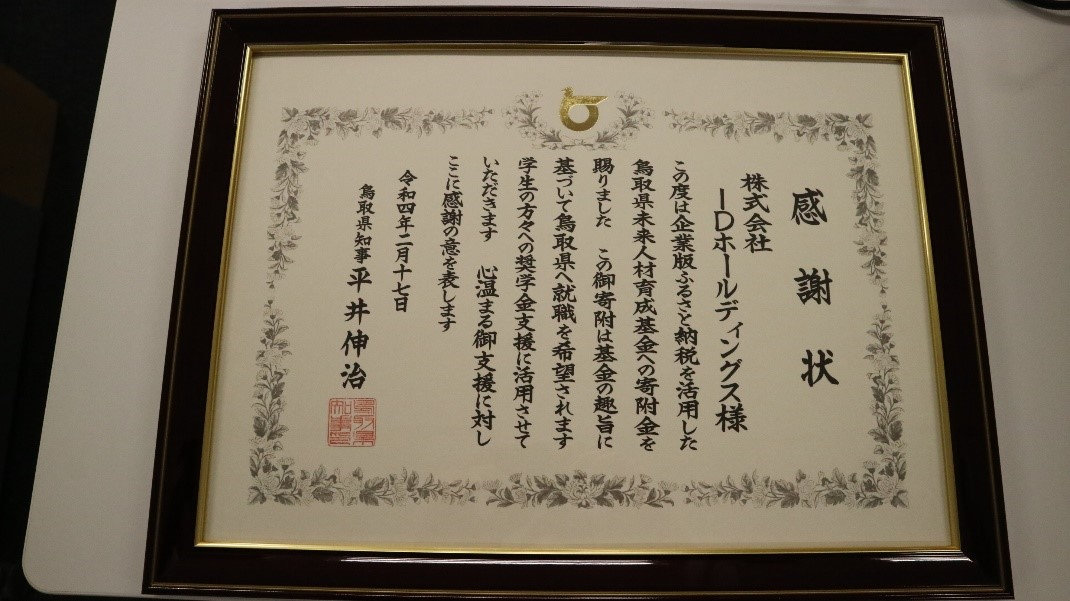 感謝状
株式会社
IDホールディングス様
この度は企業版ふるさと納税を活用した
鳥取県未来人材育成基金への寄附金を
賜りました この御寄附は基金の趣旨に
基づいて鳥取県へ就職を希望されます
学生の方々への奨学金支援に活用させて
いただきます 心温まる御支援に対し
ここに感謝の意を表します
令和四年二月十七日
鳥取県知事 平井伸治
鳥取県知事印